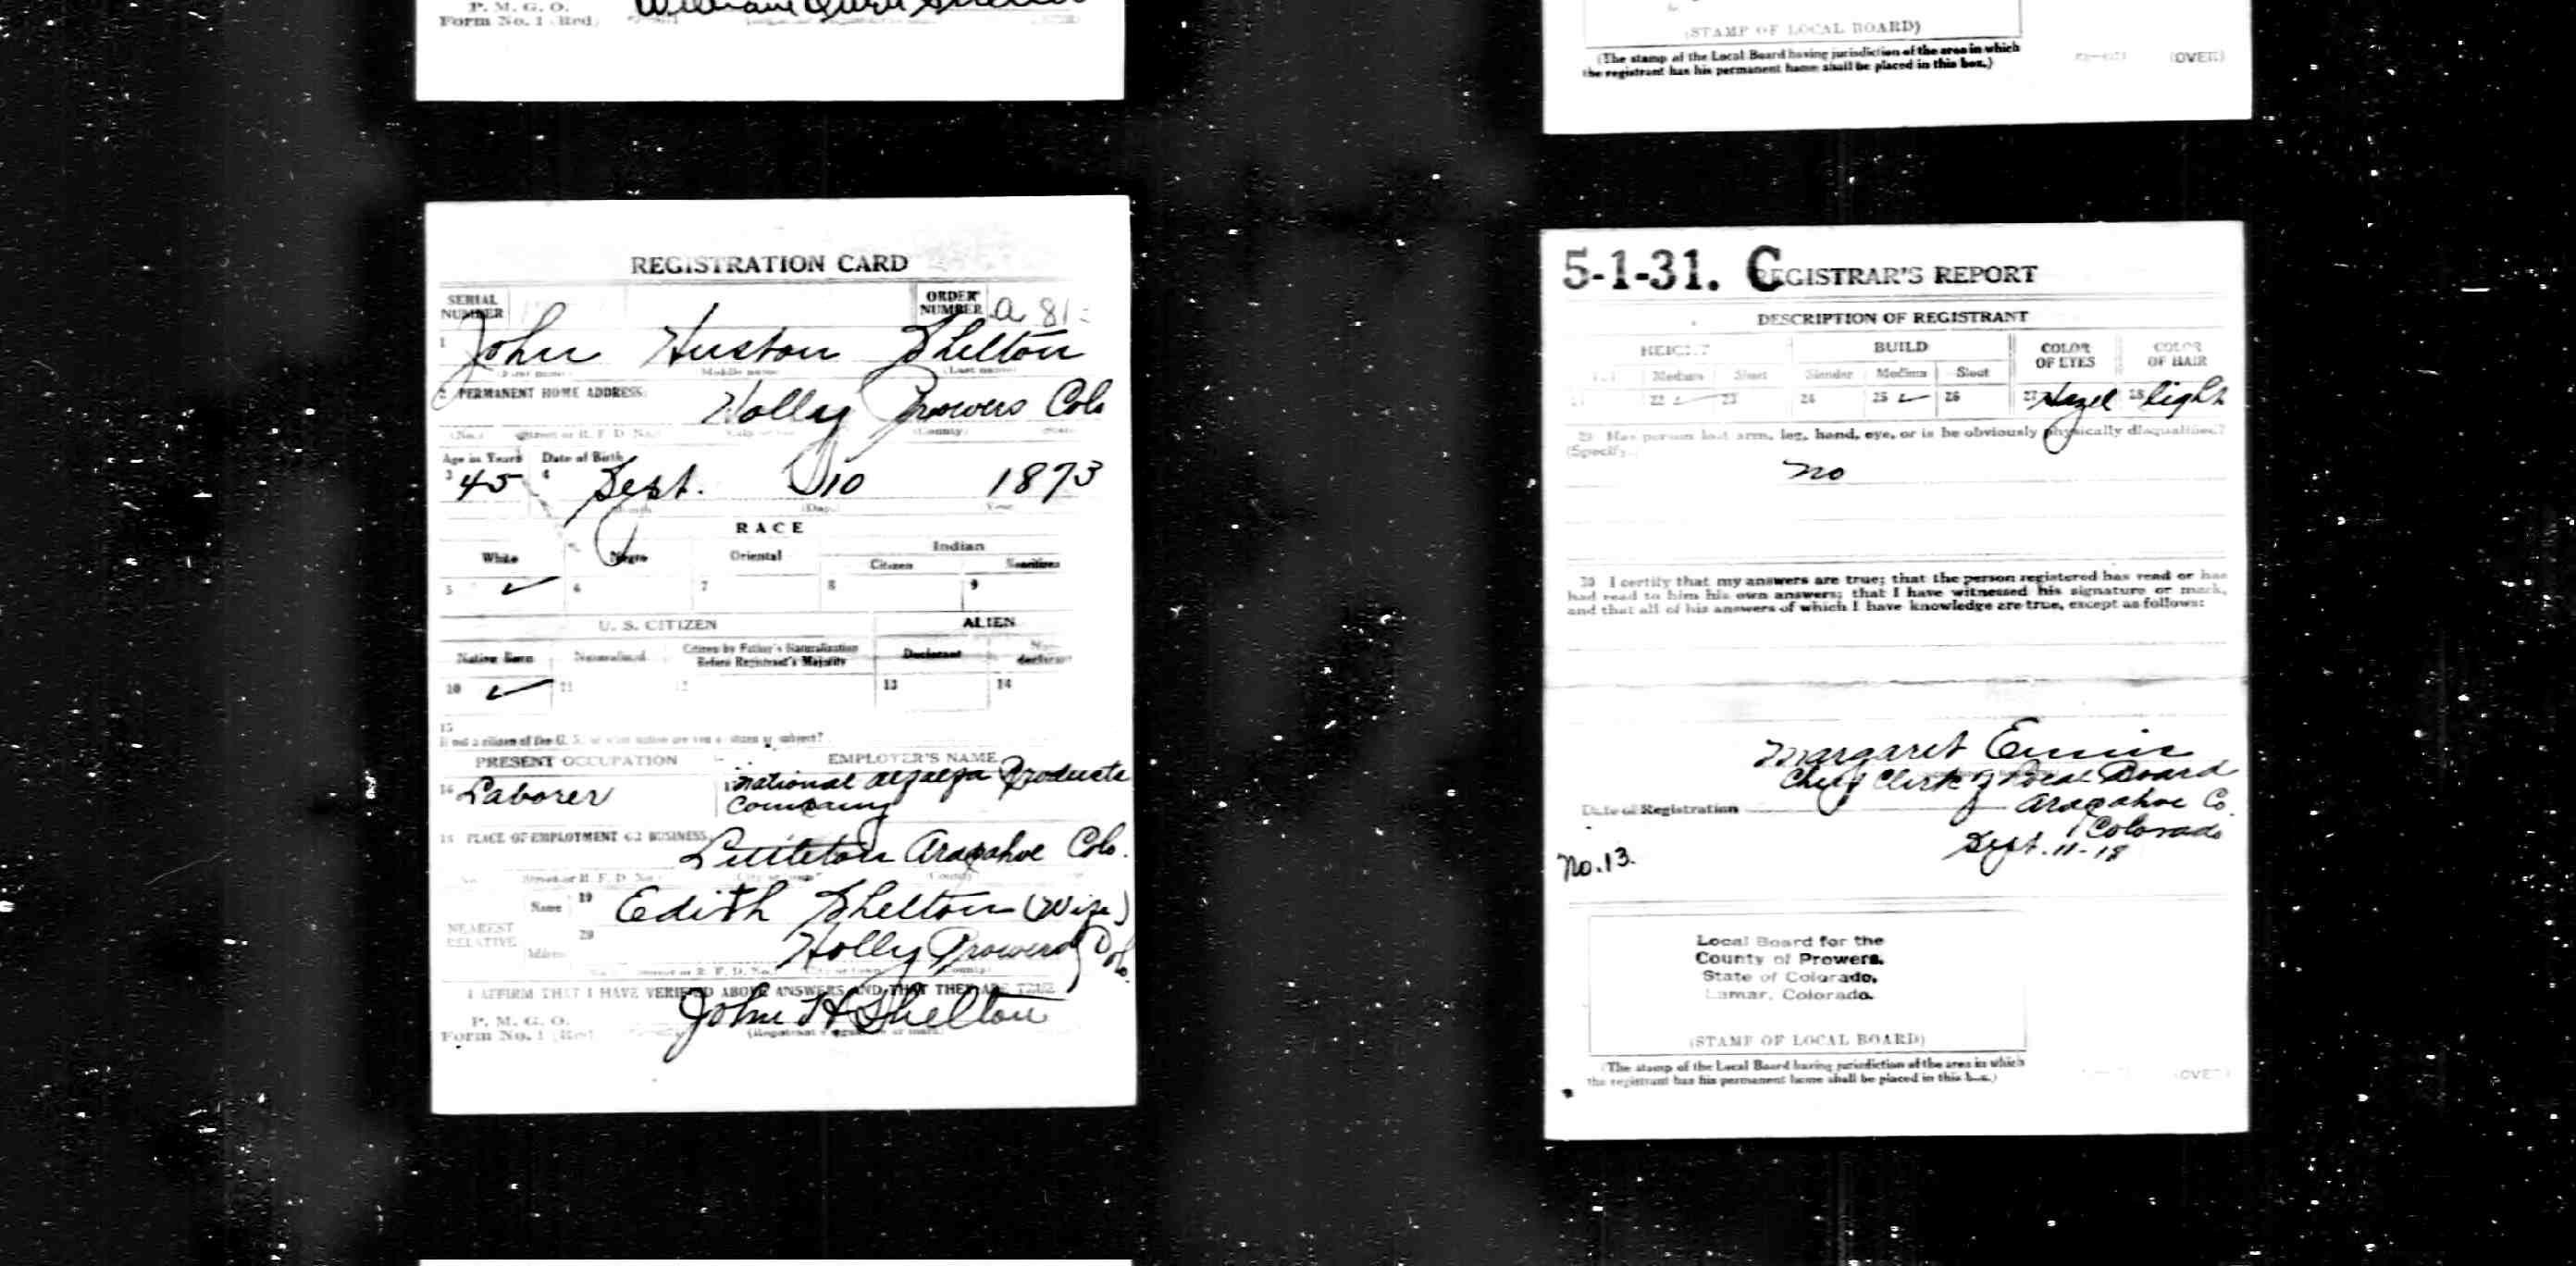 P. M. G. O.
Form No. 1 (Red)
(STAMP OF LOCAL BOARD)
(The stamp of the Local Board having jurisdiction of the area in which
the registrant has his permanent home shall be placed in this box.)
(OVER)
REGISTRATION CARD
SERIAL
NUMBER
ORDER
NUMBER
a 81
1
John Huston Shelton
(First name) Middle name (Last name)
2 PERMANENT HOME ADDRESS:
Holly Prowers Colo
(No.) (Street or R. F. D. No.) (County) (State)
Age in Years Date of Birth
3 45 4 Sept. 10 1873
Month (Day) Year
RACE
White Negro Oriental Indian
Citizen Noncitizen
5 ✓ 6 7 8 9
U. S. CITIZEN ALIEN
Native Born Naturalized Citizen by Father's Naturalization
Before Registrant's Majority Declarant Non-
declarant
10 ✓ 11 12 13 14
15
If not a citizen of the U. S., of what nation are you a citizen or subject?
PRESENT OCCUPATION EMPLOYER'S NAME
16 Laborer National Alfalfa Products
Company
18 PLACE OF EMPLOYMENT OR BUSINESS:
Littleton Arapahoe Colo.
(No.) (Street or R. F. D. No.) (City or town) (County)
NEAREST
RELATIVE
Name 19 Edith Shelton (Wife)
Address 20 Holly Prowers Colo.
(No.) (Street or R. F. D. No.) (City or town) (County)
I AFFIRM THAT I HAVE VERIFIED ABOVE ANSWERS AND THAT THEY ARE TRUE
P. M. G. O.
Form No. 1 (Red)
John H Shelton
(Registrant's signature or mark)
5-1-31. C REGISTRAR'S REPORT
DESCRIPTION OF REGISTRANT
HEIGHT BUILD COLOR
OF EYES COLOR
OF HAIR
Tall Medium Short Slender Medium Stout
21 22 ✓ 23 24 25 ✓ 26 27 Hazel 28 light
29 Has person lost arm, leg, hand, eye, or is he obviously physically disqualified?
(Specify.)
no
30 I certify that my answers are true; that the person registered has read or has
had read to him his own answers; that I have witnessed his signature or mark,
and that all of his answers of which I have knowledge are true, except as follows:
Margaret Ennis
Chief Clerk of Local Board
Date of Registration
Arapahoe Co.
Colorado
Sept. 11-18
No. 13.
Local Board for the
County of Prowers.
State of Colorado,
Lamar, Colorado.
(STAMP OF LOCAL BOARD)
(The stamp of the Local Board having jurisdiction of the area in which
the registrant has his permanent home shall be placed in this box.)
(OVER)